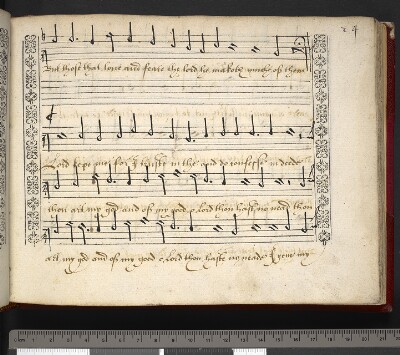 24
But those that love and feare the lord he maketh much of them
Lord kepe me for I trust in the and do confesse in dede
thou art my god and of my good o lord thou hast no nead thou
art my god and of my good o lord thou haste no neade I give my